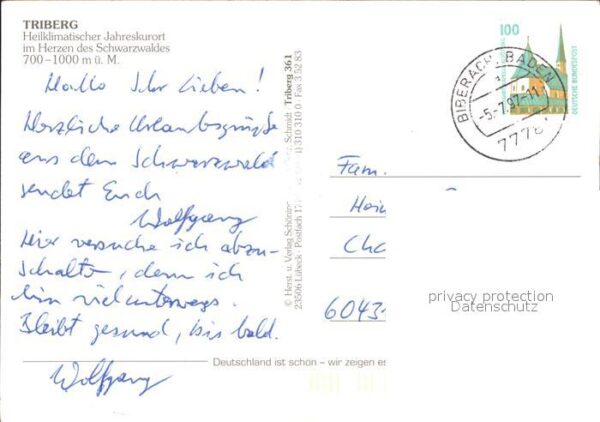 TRIBERG
Heilklimatischer Jahreskurort
im Herzen des Schwarzwaldes
700–1000 m ü. M.
Hallo Ihr Lieben!
Herzliche Urlaubsgrüße
aus dem Schwarzwald
sendet Euch
Wolfgang
Hier versuche ich abzu-
schalten, denn ich
bin viel unterwegs.
Bleibt gesund, bis bald.
Wolfgang
© Herst. u. Verlag Schöning Schmidt Triberg 361
23506 Lübeck · Postfach 310 310 0 · Fax 3 52 83
100
DEUTSCHE BUNDESPOST
BIBERACH, BADEN
-5.-7.97-11
7778
Fam.
Hein
Cha
6043
privacy protection
Datenschutz
Deutschland ist schön – wir zeigen es